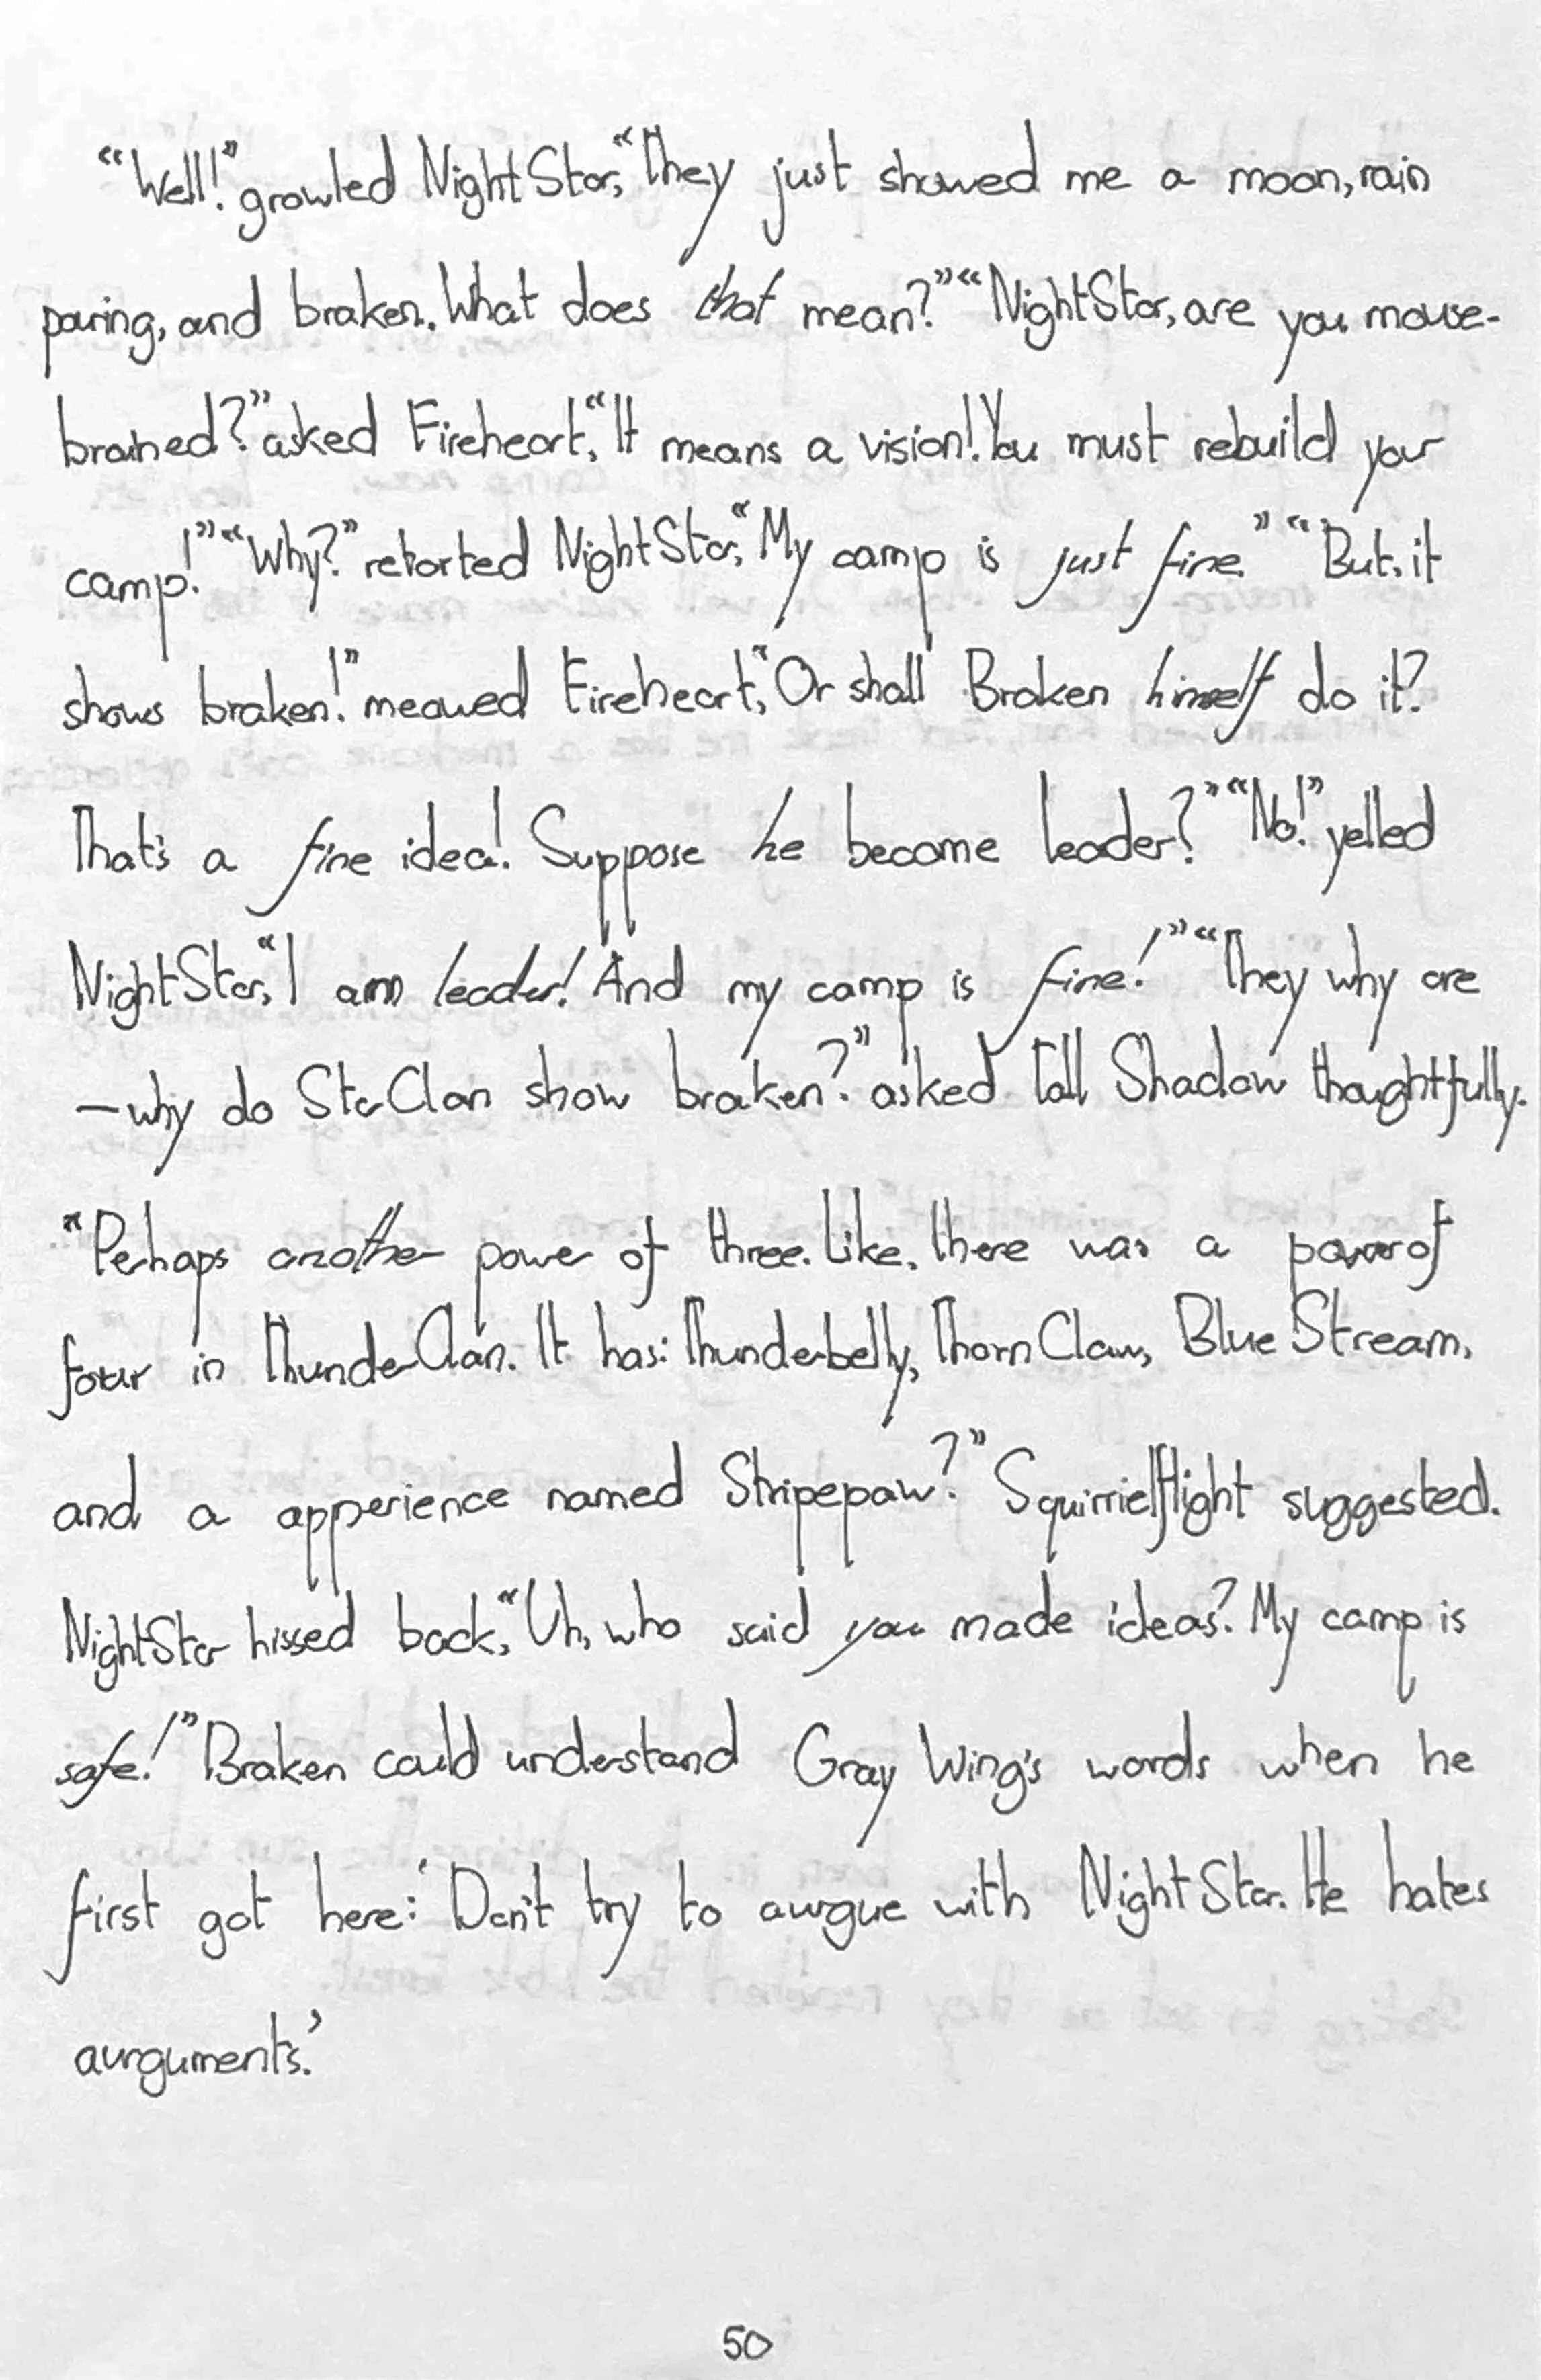 “Well!” growled NightStar, “They just showed me a moon, rain
pouring, and braken. What does that mean?” “NightStar, are you mouse-
brained?” asked Fireheart, “It means a vision! You must rebuild your
camp!” “Why?” retorted NightStar, “My camp is just fine.” “But, it
shows braken!” meowed Fireheart, “Or shall Braken himself do it?
That's a fine idea! Suppose he become leader?” “No!” yelled
NightStar, “I am leader! And my camp is fine!” “They why are
—why do StarClan show braken?” asked Tall Shadow thoughtfully.
“Perhaps another power of three. Like, there was a power of
four in ThunderClan. It has: Thunderbelly, ThornClaw, BlueStream,
and a apperience named Stripepaw?” Squirrielflight suggested.
NightStar hissed back, “Uh, who said you made ideas? My camp is
safe!” Braken could understand Gray Wing's words when he
first got here: ‘Don't try to aurgue with NightStar. He hates
aurguments.’
50